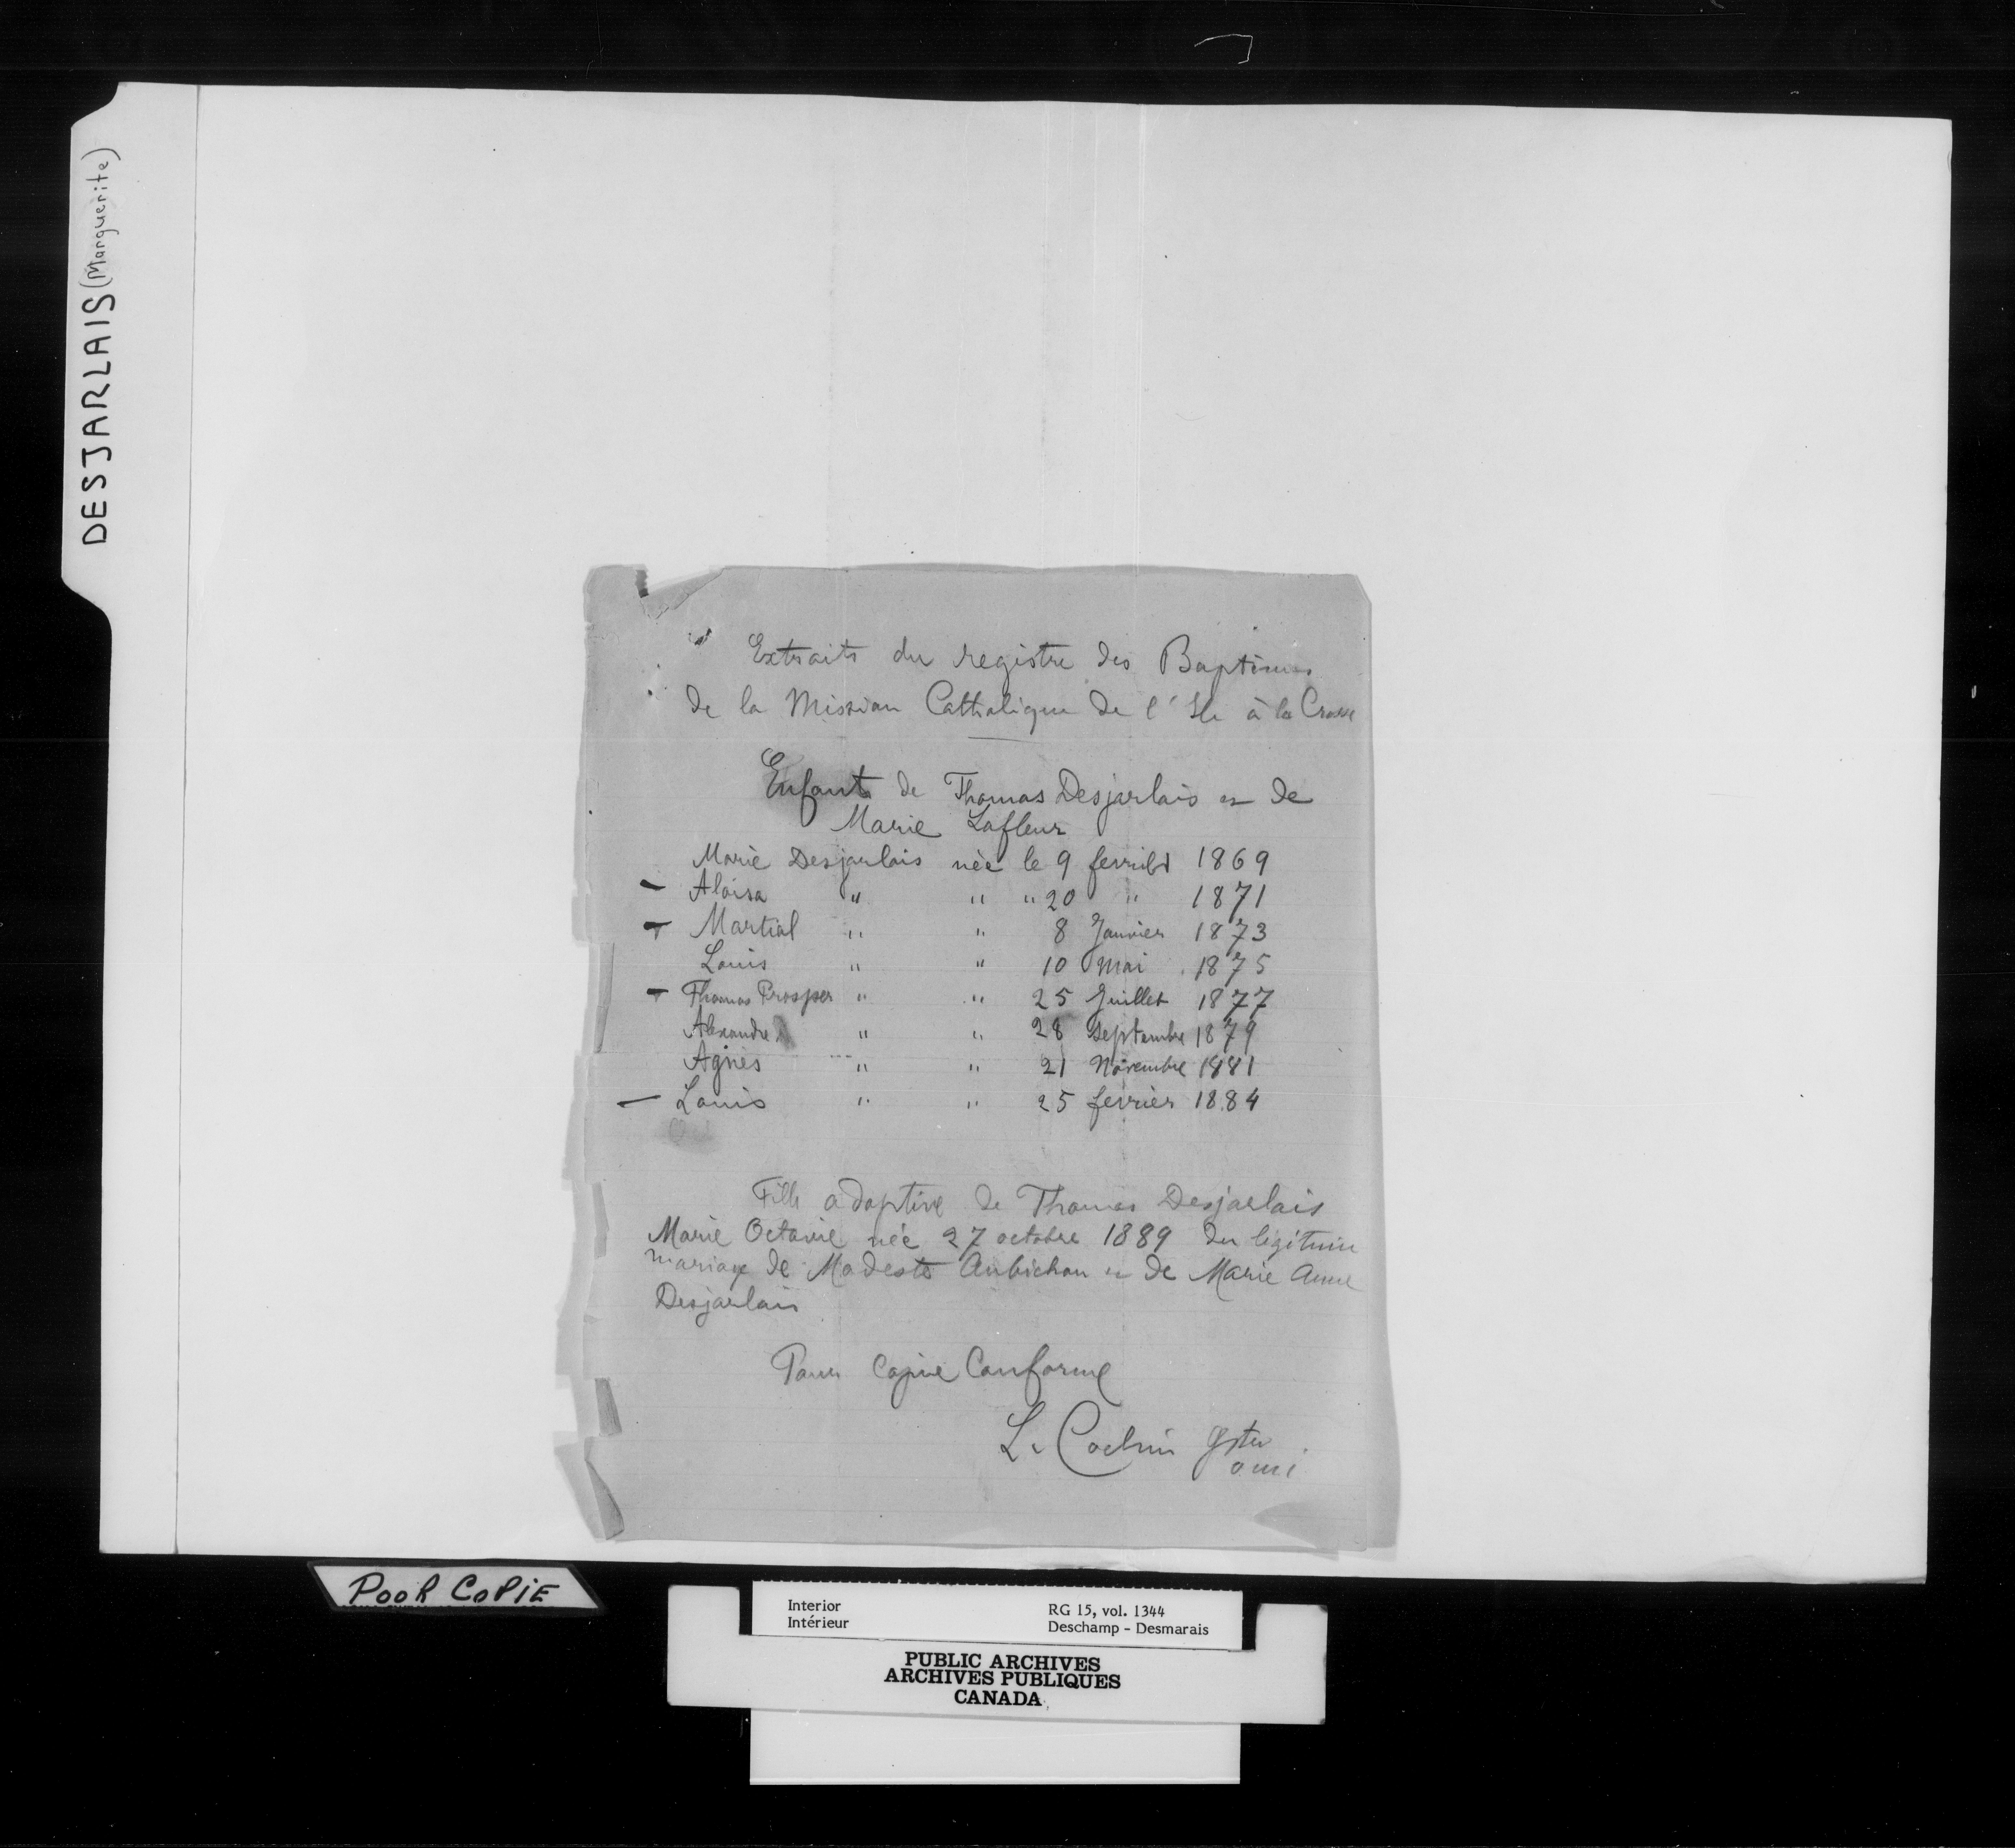 DESJARLAIS (Marguerite)
Extraits du registre des Baptêmes
de la Mission Catholique de l'Ile à la Crosse
Enfants de Thomas Desjarlais et de
Marie Lafleur
Marie Desjarlais née le 9 fevrier 1869
— Aloisa " " " 20 " 1871
— Martial " " 8 Janvier 1873
Louis " " 10 Mai 1875
— Thomas Prosper " " 25 Juillet 1877
Alexandre " " 28 Septembre 1879
Agnès " " 21 Novembre 1881
— Louis " " 25 fevrier 1884
Fille adoptive de Thomas Desjarlais
Marie Octavie née 27 octobre 1889 du légitime
mariage de Modeste Aubichon et de Marie Anne
Desjarlais
Pour Copie Conforme
L. Cochin ptre
omi
POOR COPIE
Interior
Intérieur
RG 15, vol. 1344
Deschamp – Desmarais
PUBLIC ARCHIVES
ARCHIVES PUBLIQUES
CANADA